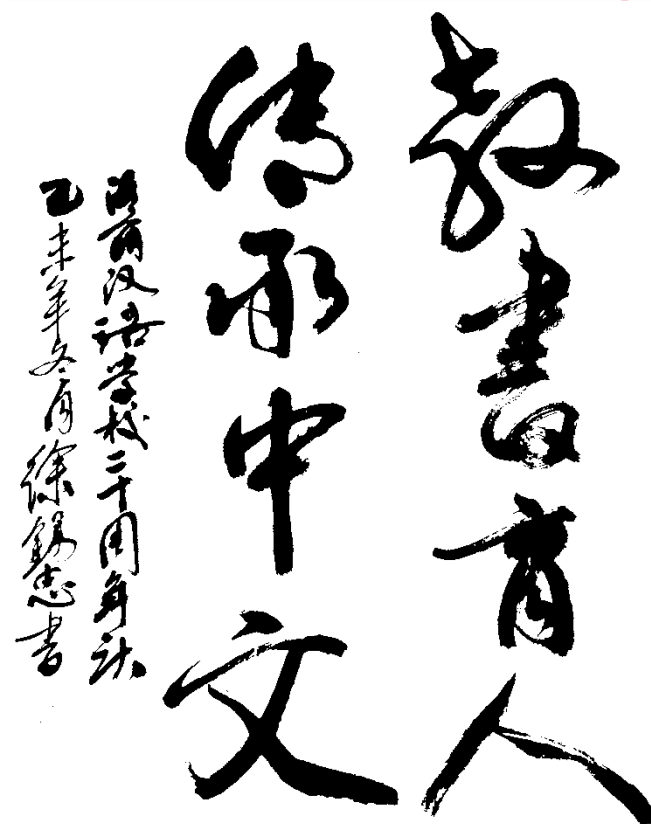 教書育人
傳承中文
汉语学校二十周年
乙未年冬月徐錫忠書